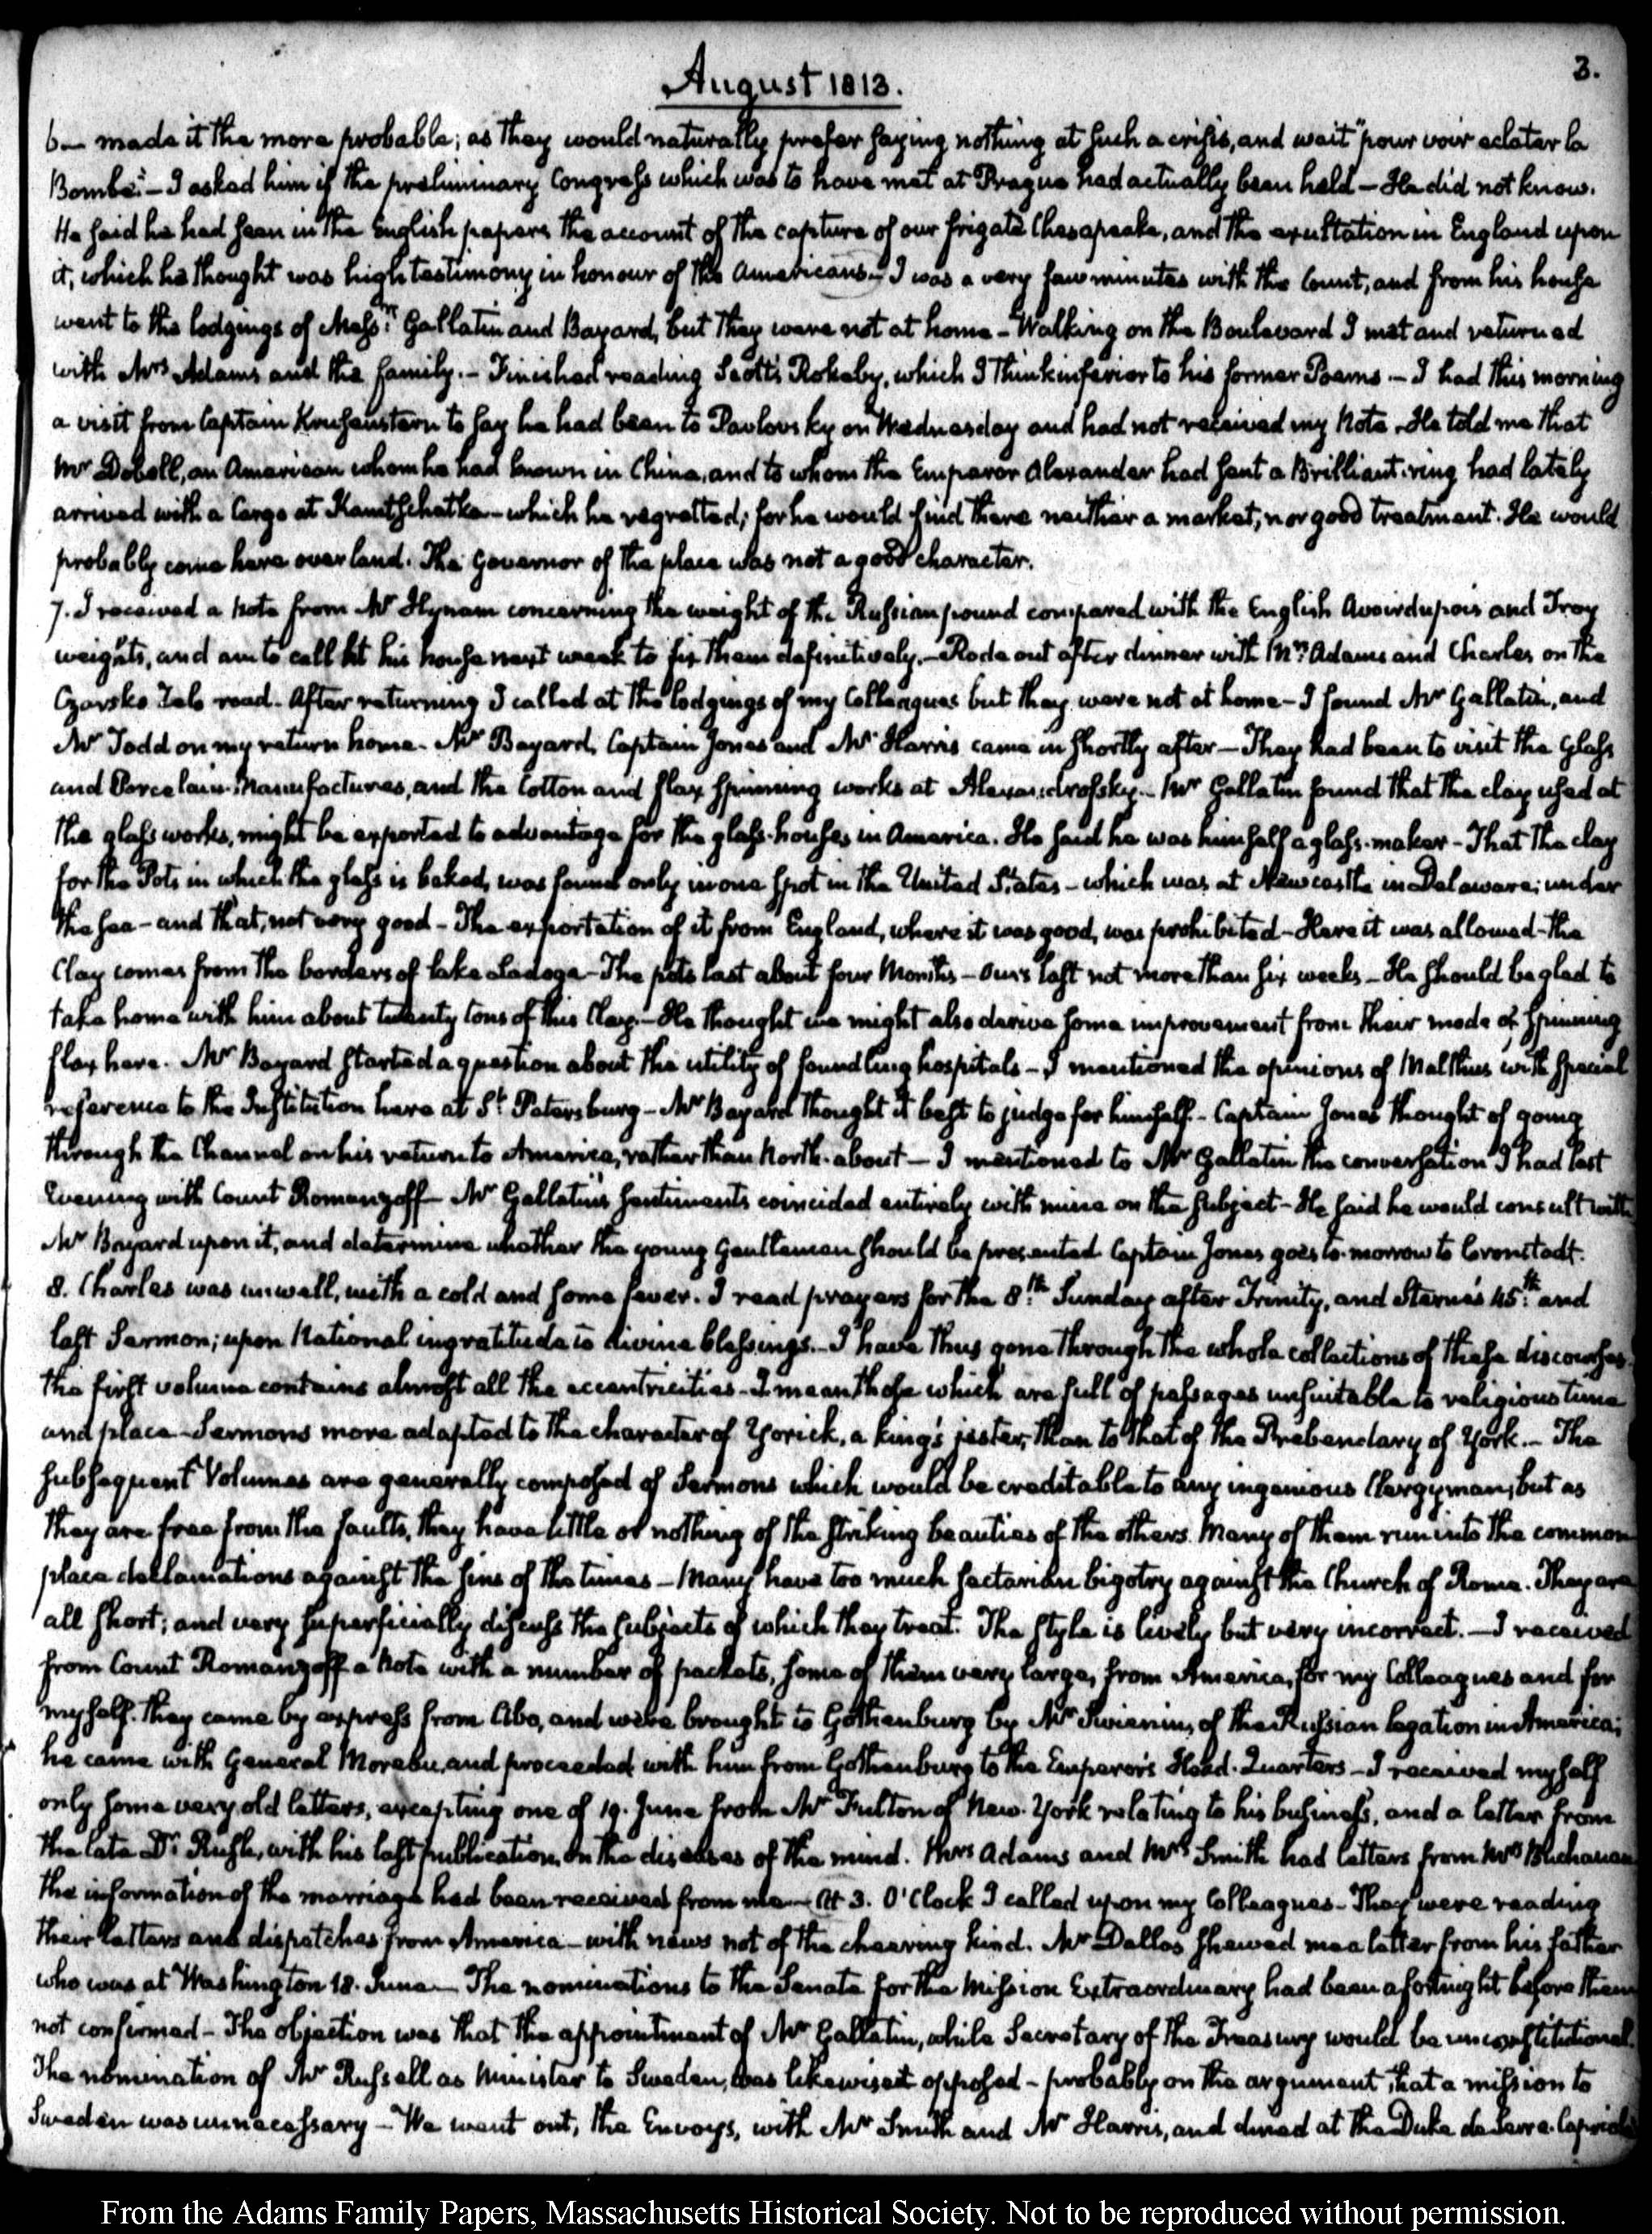 August 1813.
3.
6— made it the more probable; as they would naturally prefer saying nothing at such a crisis, and wait "pour voir eclater la
Bombe."— I asked him if the preliminary Congress which was to have met at Prague had actually been held — He did not know.
He said he had seen in the English papers the account of the capture of our frigate Chesapeake, and the exultation in England upon
it, which he thought was high testimony in honour of the Americans— I was a very few minutes with the Count, and from his house
went to the lodgings of Mess.rs Gallatin and Bayard, but they were not at home — Walking on the Boulevard I met and returned
with Mrs Adams and the family. — Finished reading Scott's Rokeby, which I think inferior to his former Poems — I had this morning
a visit from Captain Krusenstern to say he had been to Pavlovsky on Wednesday and had not received my Note. He told me that
Mr Dobell, an American whom he had known in China, and to whom the Emperor Alexander had sent a Brilliant ring had lately
arrived with a Cargo at Kamtschatka — which he regretted; for he would find there neither a market, nor good treatment. He would
probably come here over land. The Governor of the place was not a good character.
7. I received a Note from Mr Hynam concerning the weight of the Russian pound compared with the English Avoirdupois and Troy
weights, and am to call at his house next week to fix them definitively.— Rode out after dinner with Mrs Adams and Charles on the
Czarsko Zelo road. After returning I called at the lodgings of my Colleagues but they were not at home — I found Mr Gallatin, and
Mr Todd on my return home. Mr Bayard, Captain Jones and Mr Harris came in shortly after — They had been to visit the Glass
and Porcelain Manufactures, and the Cotton and flax spinning works at Alexandrofsky.— Mr Gallatin found that the clay used at
the glass works, might be exported to advantage for the glass-houses in America. He said he was himself a glass-maker — That the clay
for the Pots in which the glass is baked, was found only in one spot in the United States — which was at Newcastle in Delaware; under
the sea — and that, not very good — The exportation of it from England, where it was good, was prohibited — Here it was allowed — the
Clay comes from the borders of lake Ladoga — The pots last about four Months — Ours last not more than six weeks — He should be glad to
take home with him about twenty tons of this Clay.— He thought we might also derive some improvement from their mode of spinning
flax here. Mr Bayard started a question about the utility of foundling hospitals — I mentioned the opinions of Malthus with special
reference to the Institution here at St. Petersburg — Mr Bayard thought it best to judge for himself. — Captain Jones thought of going
through the Channel on his return to America, rather than North-about — I mentioned to Mr Gallatin the conversation I had last
Evening with Count Romanzoff — Mr Gallatin's sentiments coincided entirely with mine on the subject — He said he would consult with
Mr Bayard upon it, and determine whether the young Gentlemen should be presented. Captain Jones goes to-morrow to Cronstadt.
8. Charles was unwell, with a cold and some fever. I read prayers for the 8th. Sunday after Trinity, and Sterne's 45th. and
last Sermon; upon National ingratitude to divine blessings.— I have thus gone through the whole collections of these discourses.
the first volume contains almost all the eccentricities — I mean those which are full of passages unsuitable to religious time
and place — Sermons more adapted to the character of Yorick, a king's jester, than to that of the Prebendary of York.— The
subsequent Volumes are generally composed of Sermons which would be creditable to any ingenious Clergyman, but as
they are free from the faults, they have little or nothing of the striking beauties of the others. Many of them run into the common
place declamations against the sins of the times — Many have too much sectarian bigotry against the Church of Rome. They are
all short; and very superficially discuss the subjects of which they treat. The style is lively but very incorrect. — I received
from Count Romanzoff a Note with a number of packets, some of them very large, from America, for my Colleagues and for
myself. They came by express from Abo, and were brought to Gothenburg by Mr Swienin, of the Russian legation in America;
he came with General Moreau, and proceeded with him from Gothenburg to the Emperor's Head-Quarters — I received myself
only some very old letters, excepting one of 19. June from Mr Fulton of New-York relating to his business, and a letter from
the late Dr. Rush, with his last publication, on the diseases of the mind. Mrs Adams and Mrs Smith had letters from Mrs Buchanan
the information of the marriage had been received from me — At 3. O'Clock I called upon my Colleagues — They were reading
their letters and dispatches from America — with news not of the cheering kind. Mr Dallas shewed me a letter from his father
who was at Washington 18. June — The nominations to the Senate for the Mission Extraordinary had been a fortnight before them
not confirmed — The objection was that the appointment of Mr Gallatin, while Secretary of the Treasury would be unconstitutional.
The nomination of Mr Russell as Minister to Sweden, was likewise opposed — probably on the argument that a mission to
Sweden was unnecessary — We went out, the Envoys, with Mr Smith and Mr Harris, and dined at the Duke de Serra Capriola
From the Adams Family Papers, Massachusetts Historical Society. Not to be reproduced without permission.